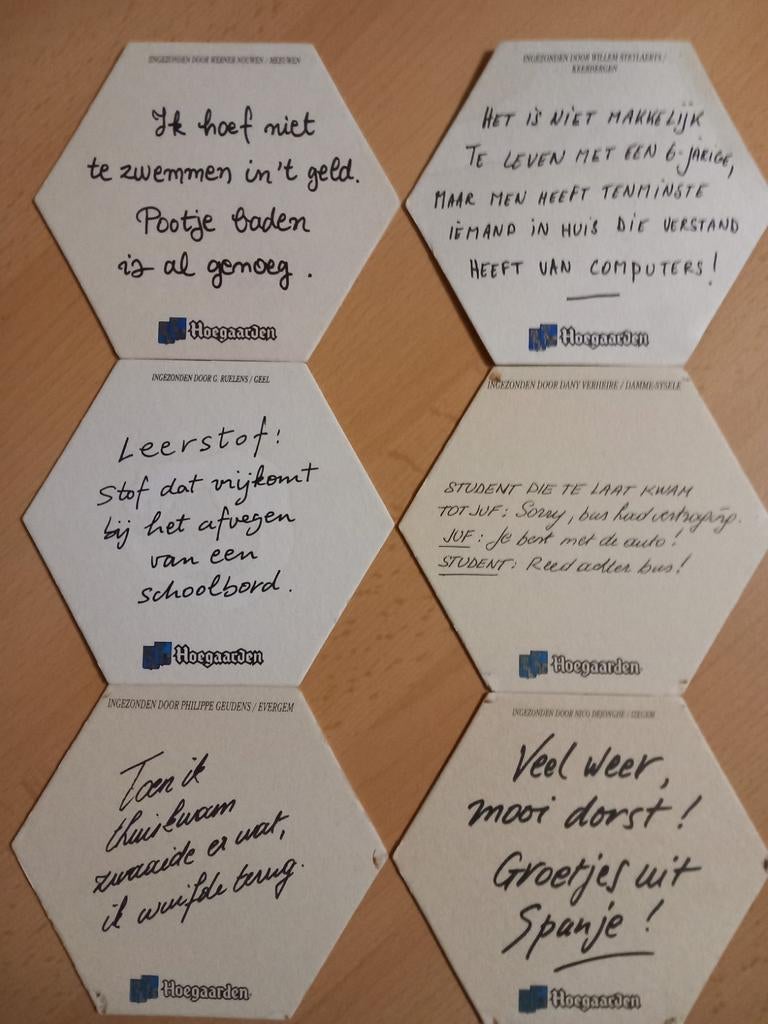 INGEZONDEN DOOR WERNER NOUWEN / MEEUWEN
Ik hoef niet
te zwemmen in't geld.
Pootje baden
is al genoeg.
Hoegaarden
INGEZONDEN DOOR WILLEM STEYLAERTS /
KEERBERGEN
HET IS NIET MAKKELIJK
TE LEVEN MET EEN 6-JARIGE,
MAAR MEN HEEFT TENMINSTE
IEMAND IN HUIS DIE VERSTAND
HEEFT VAN COMPUTERS!
Hoegaarden
INGEZONDEN DOOR G. RUELENS / GEEL
Leerstof:
Stof dat vrijkomt
bij het afvegen
van een
schoolbord.
Hoegaarden
INGEZONDEN DOOR DANY VERHEIRE / DAMME-SYSELE
STUDENT DIE TE LAAT KWAM
TOT JUF: Sorry, bus had vertraging.
JUF: Je bent met de auto!
STUDENT: Reed achter bus!
Hoegaarden
INGEZONDEN DOOR PHILIPPE GEUDENS / EVERGEM
Toen ik
thuiskwam
zwaaide er wat,
ik wuifde terug.
Hoegaarden
INGEZONDEN DOOR NICO DEJONGHE / IZEGEM
Veel weer,
mooi dorst!
Groetjes uit
Spanje!
Hoegaarden